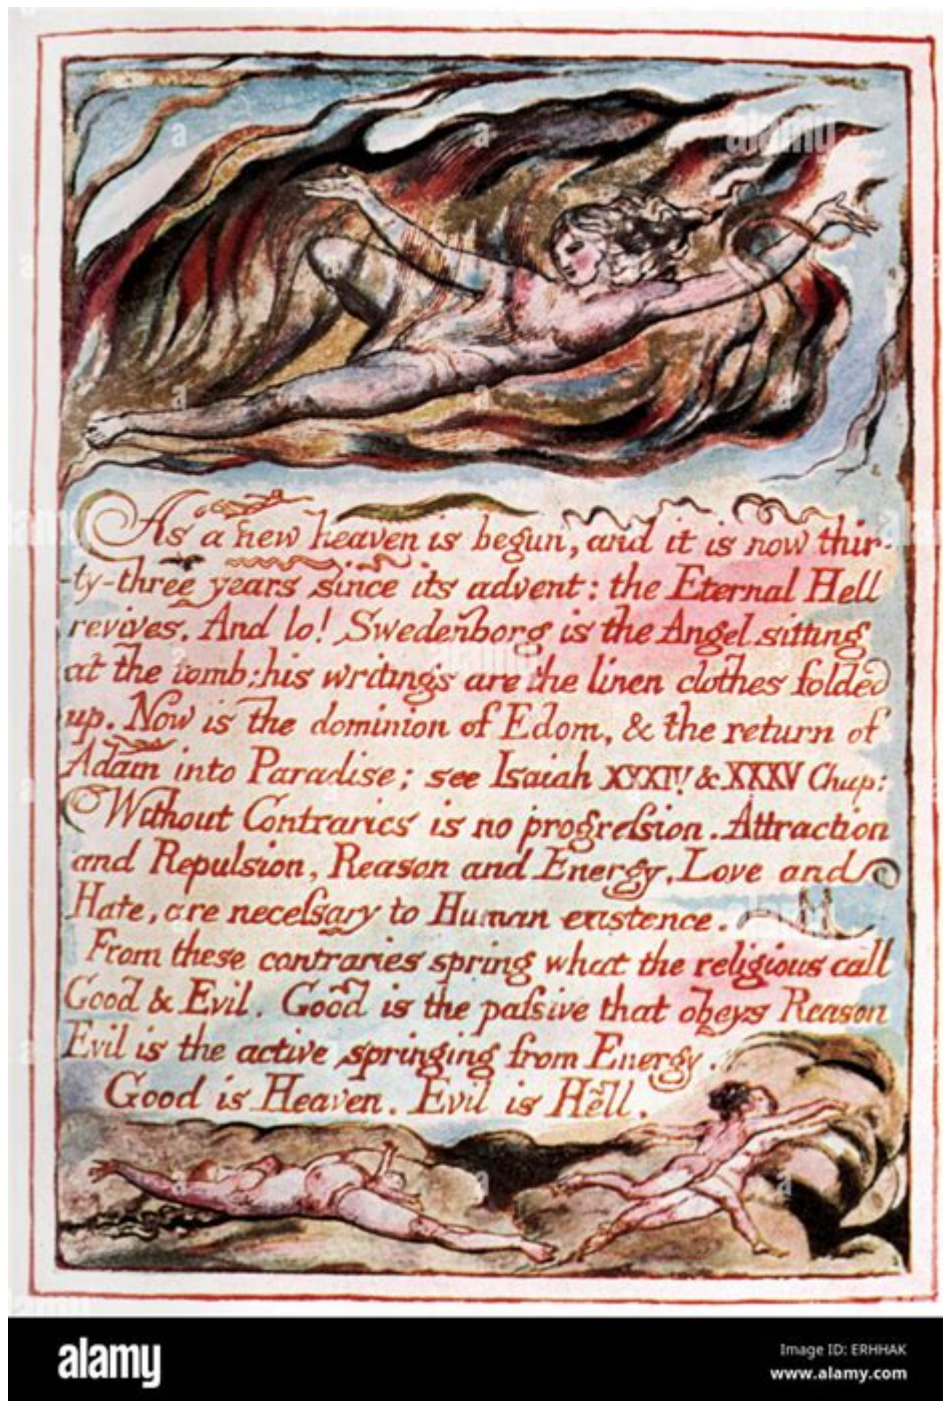 As a new heaven is begun, and it is now thir-
ty-three years since its advent: the Eternal Hell
revives. And lo! Swedenborg is the Angel sitting
at the tomb: his writings are the linen clothes folded
up. Now is the dominion of Edom, & the return of
Adam into Paradise; see Isaiah XXXIV & XXXV Chap:
Without Contraries is no progreſsion. Attraction
and Repulsion, Reason and Energy, Love and
Hate, are neceſsary to Human existence.
From these contraries spring what the religious call
Good & Evil. Good is the paſsive that obeys Reason
Evil is the active springing from Energy.
Good is Heaven. Evil is Hell.
alamy
Image ID: ERHHAK
www.alamy.com